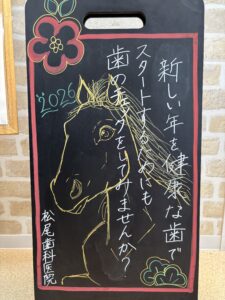 新しい年を健康な歯で
スタートするためにも
歯のチェックをしてみませんか?
2026
松尾歯科医院